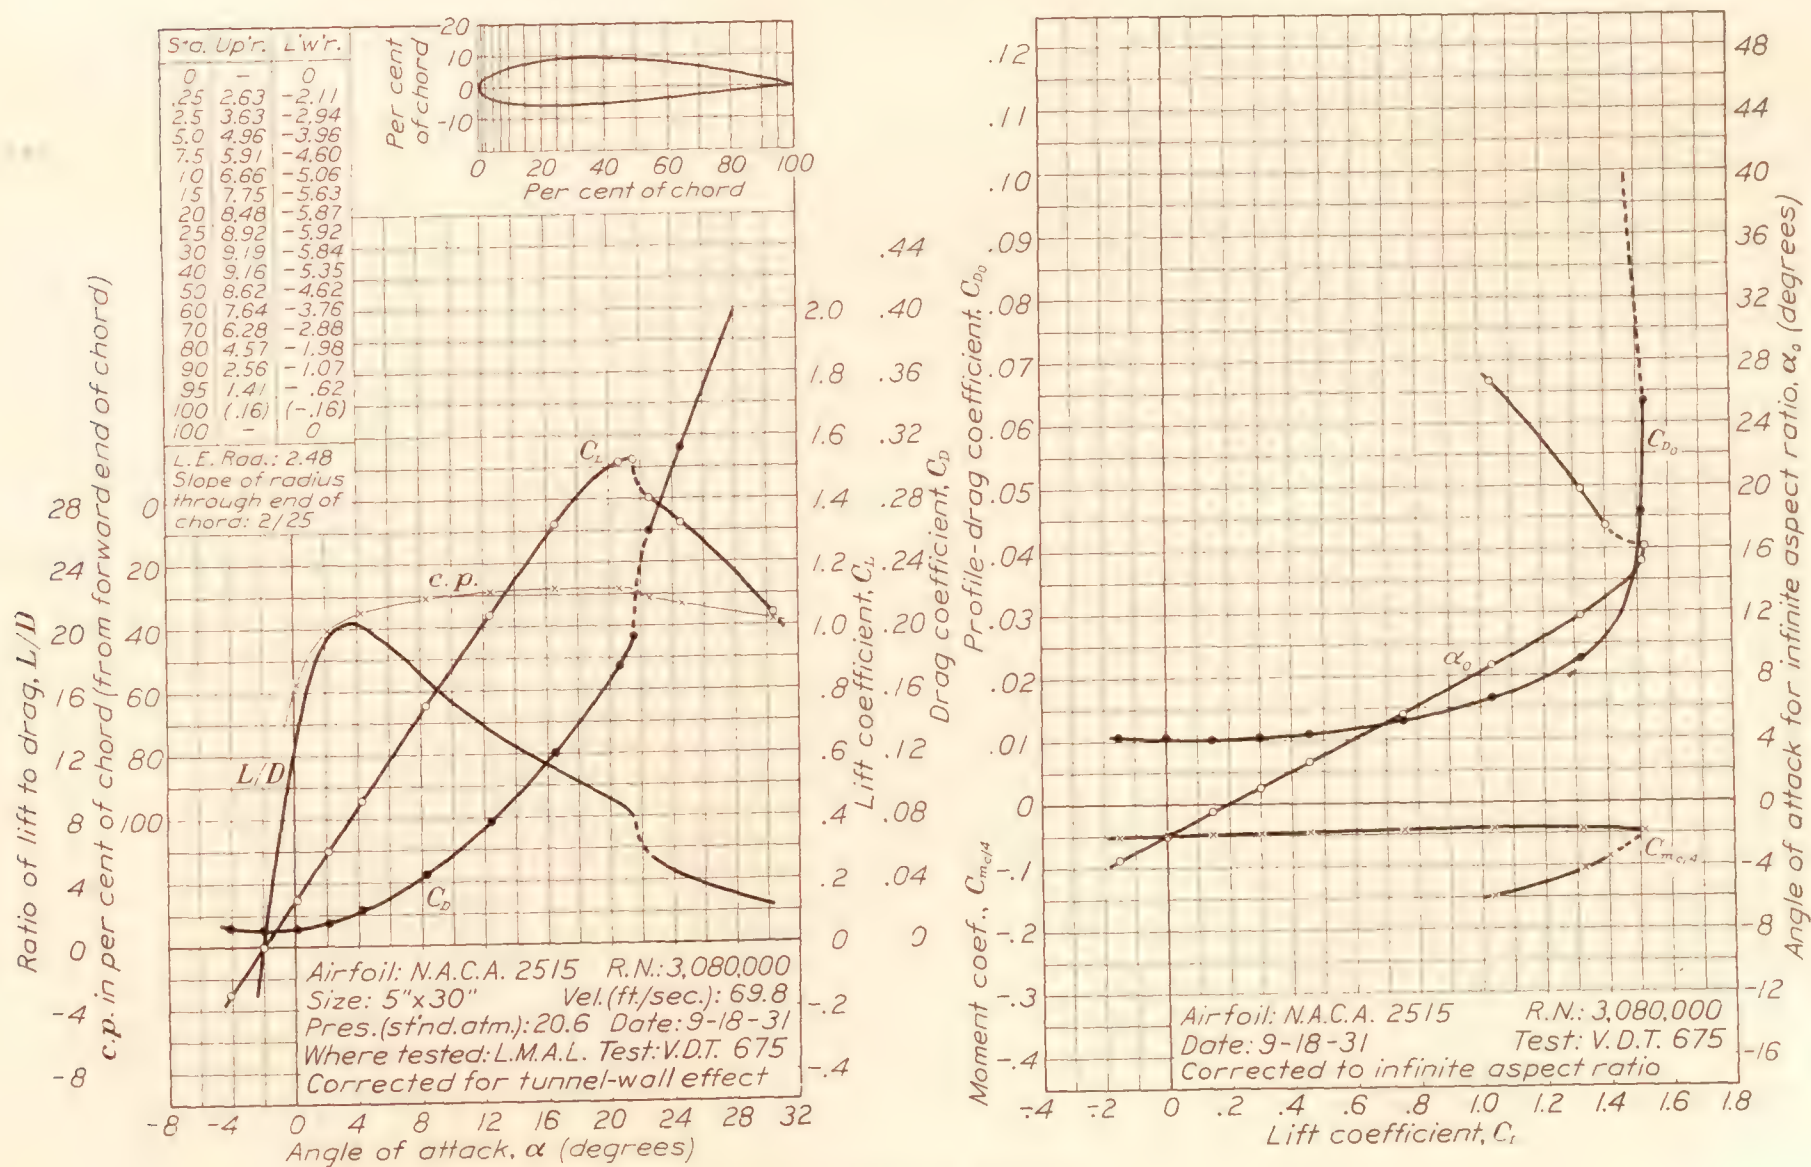 Sta. Up'r. L'w'r.
0 – 0
.25 2.63 -2.11
2.5 3.63 -2.94
5.0 4.96 -3.96
7.5 5.91 -4.60
10 6.66 -5.06
15 7.75 -5.63
20 8.48 -5.87
25 8.92 -5.92
30 9.19 -5.84
40 9.16 -5.35
50 8.62 -4.62
60 7.64 -3.76
70 6.28 -2.88
80 4.57 -1.98
90 2.56 -1.07
95 1.41 -.62
100 (.16) (-.16)
100 – 0
L.E. Rad.: 2.48
Slope of radius
through end of
chord: 2/25
Per cent
of chord
20
10
0
-10
0 20 40 60 80 100
Per cent of chord
Ratio of lift to drag, L/D
28
24
20
16
12
8
4
0
-4
-8
c.p. in per cent of chord (from forward end of chord)
0
20
40
60
80
100
C_L
c.p.
L/D
C_D
2.0
1.8
1.6
1.4
1.2
1.0
.8
.6
.4
.2
0
-.2
-.4
Lift coefficient, C_L
.44
.40
.36
.32
.28
.24
.20
.16
.12
.08
.04
0
Drag coefficient, C_D
Airfoil: N.A.C.A. 2515 R.N.: 3,080,000
Size: 5"x30" Vel.(ft./sec.): 69.8
Pres.(st'nd.atm.): 20.6 Date: 9-18-31
Where tested: L.M.A.L. Test: V.D.T. 675
Corrected for tunnel-wall effect
-8 -4 0 4 8 12 16 20 24 28 32
Angle of attack, α (degrees)
Profile-drag coefficient, C_D0
.12
.11
.10
.09
.08
.07
.06
.05
.04
.03
.02
.01
0
Moment coef., C_mc/4
-.1
-.2
-.3
-.4
C_D0
α0
C_mc/4
48
44
40
36
32
28
24
20
16
12
8
4
0
-4
-8
-12
-16
Angle of attack for infinite aspect ratio, α0 (degrees)
Airfoil: N.A.C.A. 2515 R.N.: 3,080,000
Date: 9-18-31 Test: V.D.T. 675
Corrected to infinite aspect ratio
-.4 -.2 0 .2 .4 .6 .8 1.0 1.2 1.4 1.6 1.8
Lift coefficient, C_L